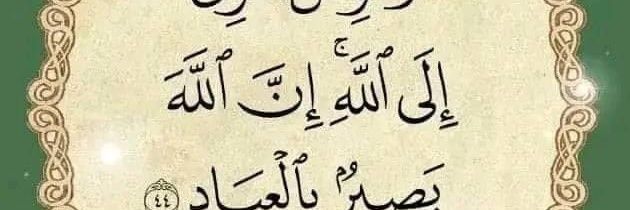 إِلَى ٱللَّهِۚ إِنَّ ٱللَّهَ
بَصِيرُۢ بِٱلۡعِبَادِ ٤٤